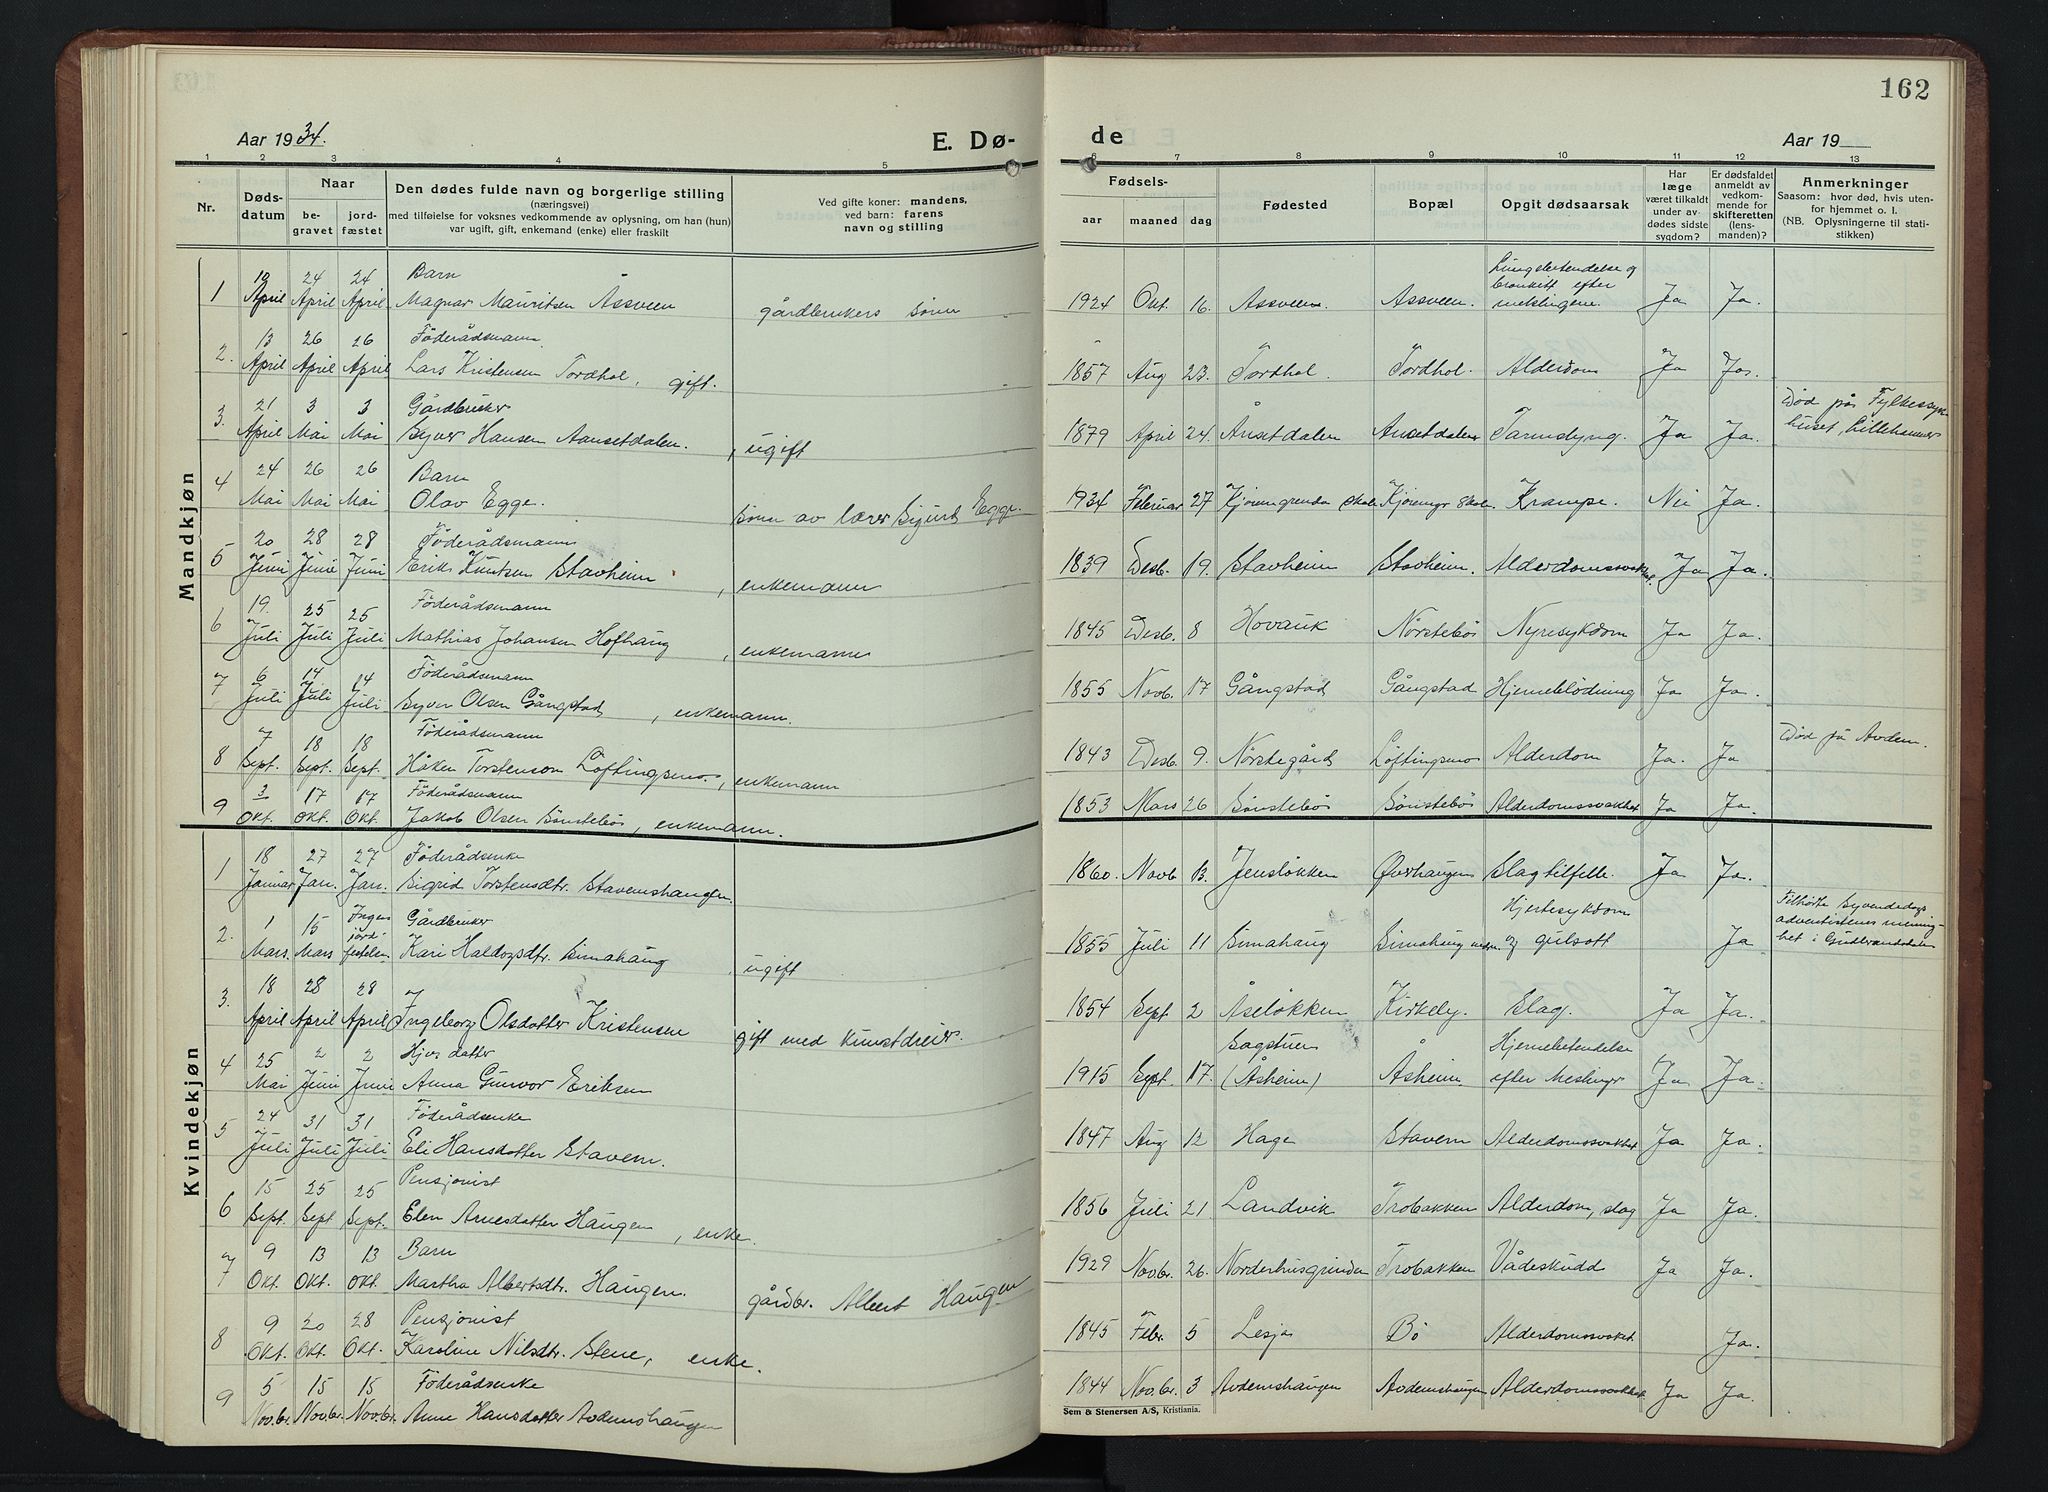 162
Aar 1934. E. Dø- de Aar 19
1 2 3 4 5 6 7 8 9 10 11 12 13
Nr. Døds-datum Naar be-gravet jord-fæstet Den dødes fulde navn og borgerlige stilling (næringsvei) med tilføielse for voksnes vedkommende av oplysning, om han (hun) var ugift, gift, enkemand (enke) eller fraskilt Ved gifte koner: mandens, ved barn: farens navn og stilling Fødsels- aar maaned dag Fødested Bopæl Opgit dødsaarsak Har læge været tilkaldt under av-dødes sidste sygdom? Er dødsfaldet anmeldt av vedkom-mende for skifteretten (lens-manden)? Anmerkninger Saasom: hvor død, hvis uten-for hjemmet o. l. (NB. Oplysningerne til stati-stikken)
Mandkjøn
1 19 April 24 April 24 April Barn Magnar Mauritsen Åssveen gårdbrukers sönn 1924 Okt. 16. Assveen. Assveen. Lungebetendelse og bronkett efter meslingene. Ja Ja.
2. 13 April 26 April 26 April Föderådsmann Lars Kristensen Tordhol, gift. 1857 Aug 23. Tordhol. Tordhol. Alderdom Ja Ja.
3. 21 April 3 Mai 3 Mai Gårdbruker Syver Hansen Aansetdalen., ugift 1879 April 24. Ånsetdalen Ansetdalen Tarmslyng. Ja Ja. Död på Fylkessyke huset, Lillehammer
4 24 Mai 26 Mai 26 Mai Barn Olav Egge. Sönn av lærer Sigurd Egge. 1934 Februar 27 Kjörumgrenda skole Kjörumgr skole. Krampe. Nei Ja.
5 20 Juni 28 Juni 28 Juni Föderådsmann Erik Knutsen Stavheim, enkemann 1839 Desb. 19. Stavheim Stavheim. Alderdomssvakhet. Ja Ja.
6 19. Juli 25 Juli 25 Juli Föderådsmann Mathias Johansen Hofhaug, enkemann 1845 Desb. 8 Hovauk Nörstebö Nyresykdom Ja Ja.
7 6 Juli 14 Juli 14 Juli Föderådsmann Syver Olsen Gångstad, enkemann. 1855 Novb. 17 Gångstad Gångstad Hjerneblödning Ja Ja.
8 7 Sept. 18 Sept. 18 Sept. Föderådsmann Håken Torstenson Löftingsmo., enkemann 1843 Desb. 9. Nörstegård Löftingsmo Alderdom Ja. Ja Död på Avdem.
9 3 Okt. 17 Okt. 17 Okt. Föderådsmann Jakob Olsen Sönstebö, enkemann. 1853 Mars 26 Sönstebö Sönstebö Alderdomssvakhet Ja Ja.
Kvindekjøn
1 18 Januar 27 Jan. 27 Jan. Föderådsenke Sigrid Torstensdtr. Stavemshaugen. 1860. Novb 13. Jenslökken Øverhaugen Slagtilfelle. Ja Ja.
2. 1 Mars. 15 Mars Ingen jord festelse Gårdbruker Kari Haldogsdtr. Simahaug, ugift 1855 Juli 11 Simahaug Simahaug nedre Hjertesykdom og gulsott Ja Tilhörte Syvendedags adventistenes menig-het i Gudbrandsdalen
3. 18 April 28 April 28 April Ingeborg Olsdatter Kristensen gift med kunstdreier. 1854 Sept. 2 Åselökken Kirkeby. Slag. Ja Ja.
4 25 Mai 2 Juni 2 Juni Hjv. datter Anna Gunvor Eriksen 1915 Sept. 17. Sagstuen (Åsheim) Åsheim. Hjernebetendelse efter Meslinger Ja Ja.
5 24 Juli 31 Juli 31 Juli Föderådsenke Eli Hansdatter Stavem. 1847 Aug 12 Hage Stavem Alderdomssvakhet Ja Ja.
6 15 Sept. 25 Sept 25 Sept. Pensjonist Elen Arnesdatter Haugen, enke. 1856 Juli 21 Landvik Trobakken Alderdom, slag Ja Ja.
7 9 Okt. 13 Okt. 13 Okt. Barn Martha Albertsdtr. Haugen. gårdbr. Albert Haugen 1929 Novbr. 26. Norderhusgrinden Trobakken Vådeskudd Ja Ja.
8 9 Okt. 20 Okt. 28 Okt. Pensjonist Karoline Nilsdtr. Stene, enke. 1845 Febr. 5 Lesja Bö Alderdomssvakhet Ja.
9 5 Nov.br. 15 Nov.br. 15 Nov.br. Föderådsenke Anne Hansdatter Avdemshaugen 1844 Nov.br. 3 Avdemshaugen Avdemshaugen Alderdomssvakhet Ja Ja.
Sem & Stenersen A/S, Kristiania.